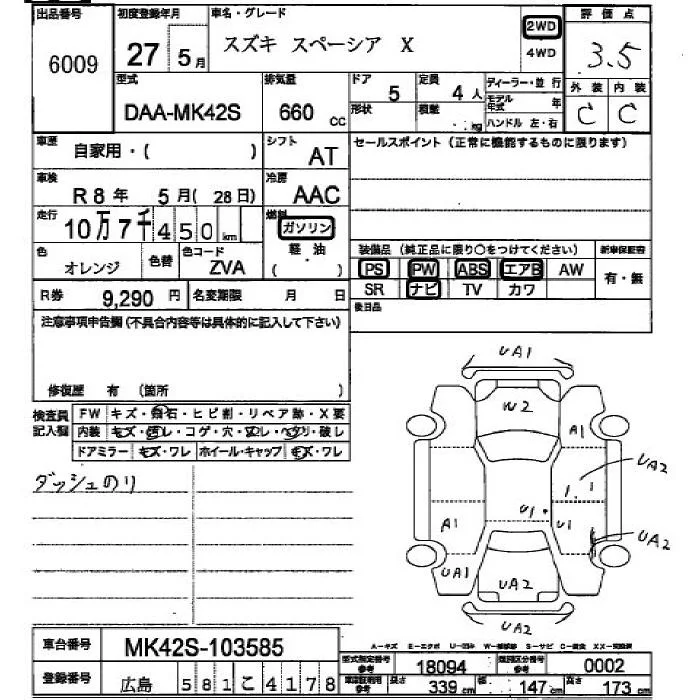 出品番号 初度登録年月 車名・グレード 評価点
6009 27年 5月 スズキ スペーシア X 2WD 4WD 3.5
型式 排気量 ドア 定員 ディーラー・並行 外装 内装
DAA-MK42S 660cc 5 4人 モデル年式 年 C C
形状 積載 kg ハンドル 左・右
車歴 自家用・( ) シフト AT セールスポイント(正常に機能するものに限ります)
車検 R8年 5月( 28日) 冷房 AAC
走行 10万7千450km 燃料 ガソリン 軽油 ( ・ )
色 オレンジ 色替 色コード ZVA
装備品 (純正品に限り○をつけてください) 新車保証書
PS PW ABS エアB AW 有・無
SR ナビ TV カワ
R券 9,290円 名変期限 月 日 後日品
注意事項申告欄(不具合内容等は具体的に記入して下さい)
修復歴 有 (箇所 )
検査員記入欄 FW キズ・飛石・ヒビ割・リペア跡・X要
内装 キズ・汚レ・コゲ・穴・スレ・ヘタリ・破レ
ドアミラー キズ・ワレ ホイール・キャップ キズ・ワレ
ダッシュのり
UA1
W2
A1
UA2
U1
U1
A1
UA2
UA1
UA2
UA2
A-キズ E-エクボ U-凹み W-補修跡 S-サビ C-腐食 XX-交換済
車台番号 MK42S-103585
型式指定番号 参考 18094 類別区分番号 参考 0002
登録番号 広島 581 こ 4178
参考 長さ 339cm 幅 147cm 高さ 173cm